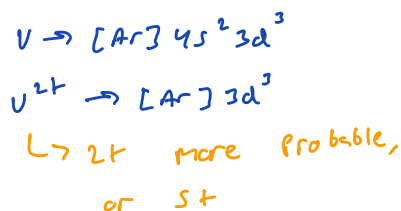 V → [Ar] 4s² 3d³
V²⁺ → [Ar] 3d³
↳ 2+ more probable,
or 5+